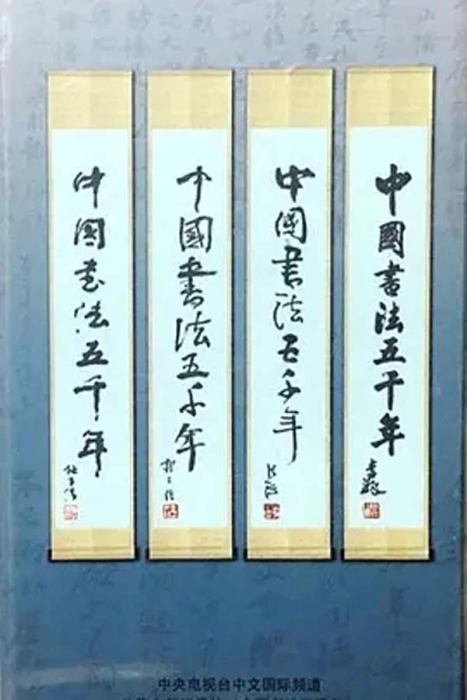 中國書法五千年
中國書法五千年
中國書法五千年
中國书法五千年
中央电视台中文国际频道